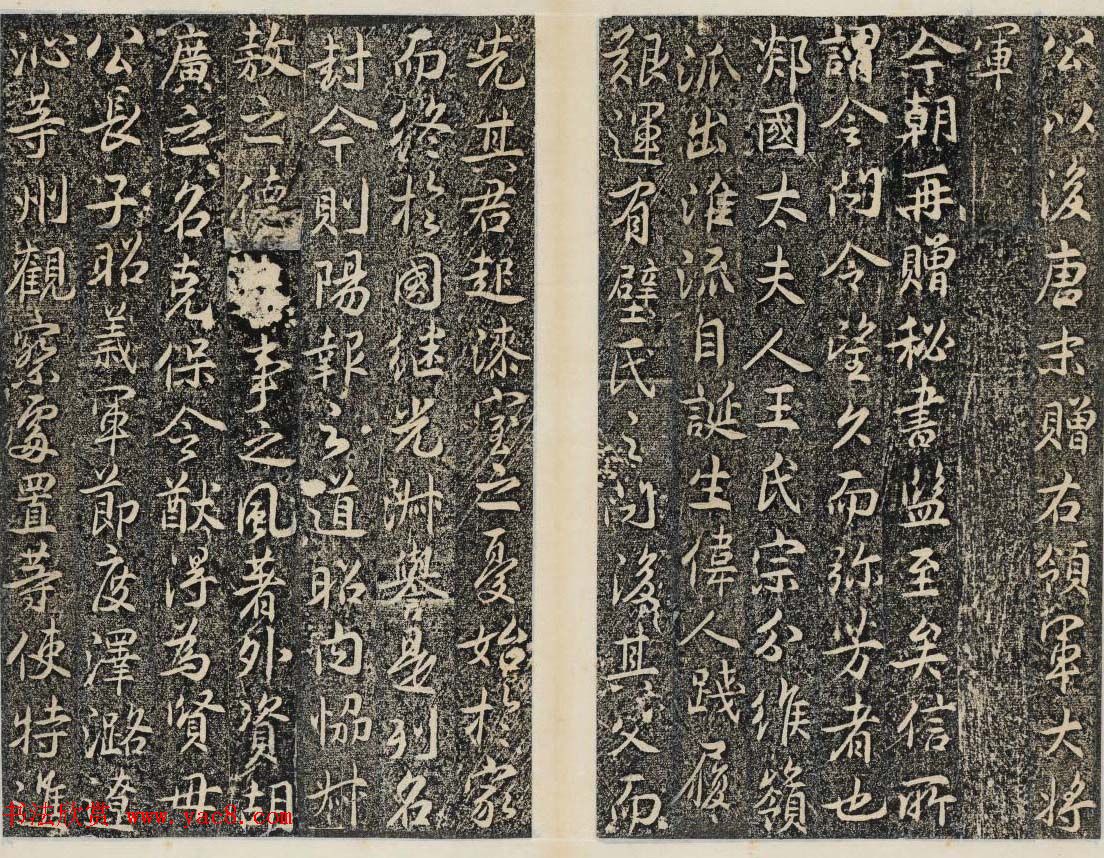 公以後唐末贈右領軍大將
軍
今朝再贈秘書監至矣信所
謂令問令望久而弥芳者也
郯國太夫人王氏宗分維嶺
派出淮流自誕生偉人踐履
艱運有壁氏之問後其父而
先其君起漆室之憂始於家
而終於國継光淋舉是列名
封今則陽報之道昭内協村
敖之德事之風著外資胡
廣之名克保令猷得為賢毋
公長子昭義軍節度澤潞
沁等州觀察處置等使特進
书法欣赏 www.yac8.com